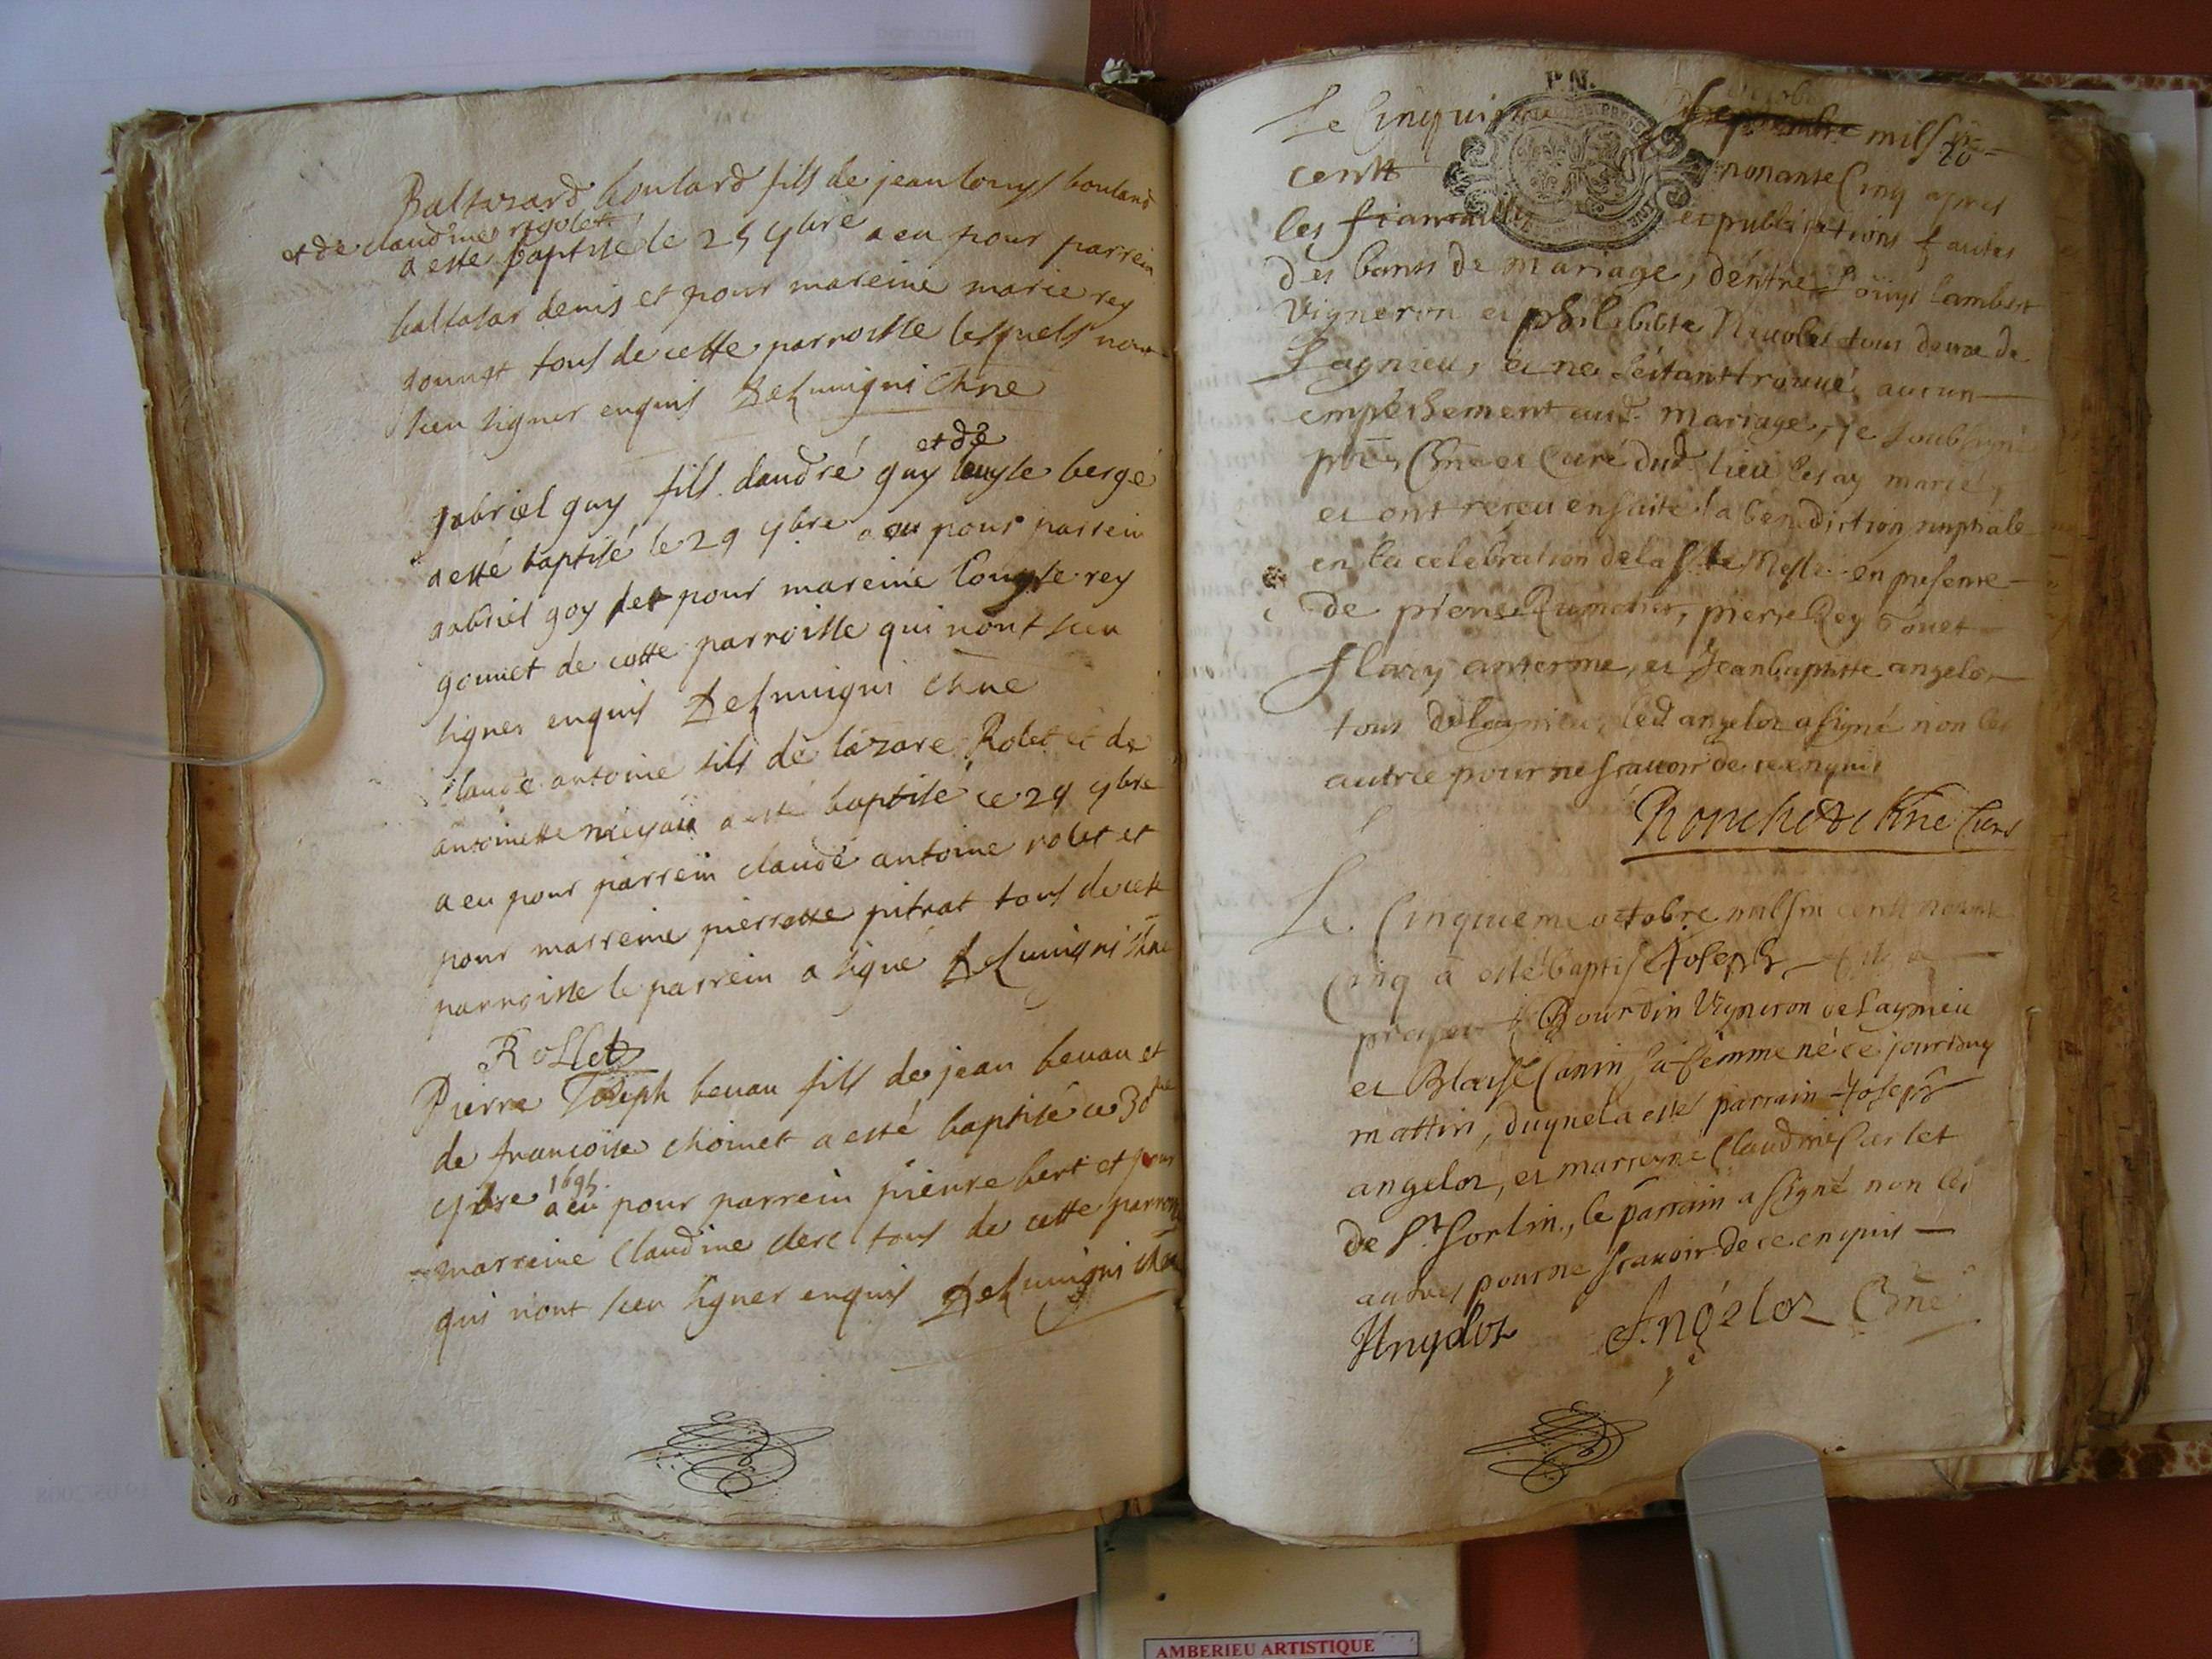 Baltazard boulard fils de jean louys boulard
et de claudine rigolet
a esté baptisé le 25 7bre a eu pour parrein
baltasar denis et pour mareine marie rey
gounet tous de cette parroisse lesquels nont
sceu signer enquis Delumigni chne
gabriel guy fils dandré guy et de louyse bergé
a esté baptisé le 29 7bre a eu pour parrein
gabriel goy et pour mareine Louyse rey
gounet de cette parroisse qui nont sceu
signer enquis Delumigni chne
claude antoine fils de lazare Rolet et de
antoinette a esté baptisé ce 29 7bre
a eu pour parrein claude antoine rolet et
pour marreine pierrette pitrat tous de cette
parroisse le parrein a signé Delumigni chne
Rollet
Pierre Joseph bevau fils de jean bevau et
de francoise choinet a esté baptisé ce 30me
7bre 1695 a eu pour parrein pierre bert et pour
marreine Claudine clerc tous de cette parroisse
qui nont sceu signer enquis Delumigni chne
P. N.
Le Cinquieme mil six
cents nonante Cinq apres
les fiancailles et publications faites
des bans de mariage, dentre Loüys Lambert
Vigneron et philiberte Nicolet tous deux de
Lagnieu, et ne sestant trouué aucun
empeschement aud. Mariage, je soubsigné
pbre Chne et Curé dud. lieu les ay mariéz
et ont receu ensuite la benediction nuptiale
en la celebration de la Ste Messe en presence
de pierre pierre Rey Gonet
flavy anterme, et Jean baptiste angelot
tous de Lagnieu, led angelot a signé non les
autres pour ne scauoir de ce enquis
Ronchet Chne Curé
Le Cinquieme octobre mil six cents nonante
Cinq a esté baptisé Joseph fils a
Bourdin Vigneron de Lagnieu
et Blaise Canin sa femme né ce jourdhuy
mattin, duquel a esté parrain Joseph
angelot, et marreine Claudine Carlet
de St Sorlin, le parrain a signé non les
autres pour ne scauoir de ce enquis
Angelot Angelot Chne
AMBERIEU ARTISTIQUE